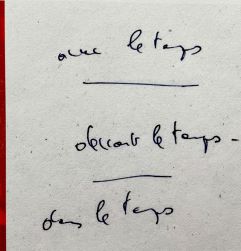 avec le temps
devant le temps -
dans le temps